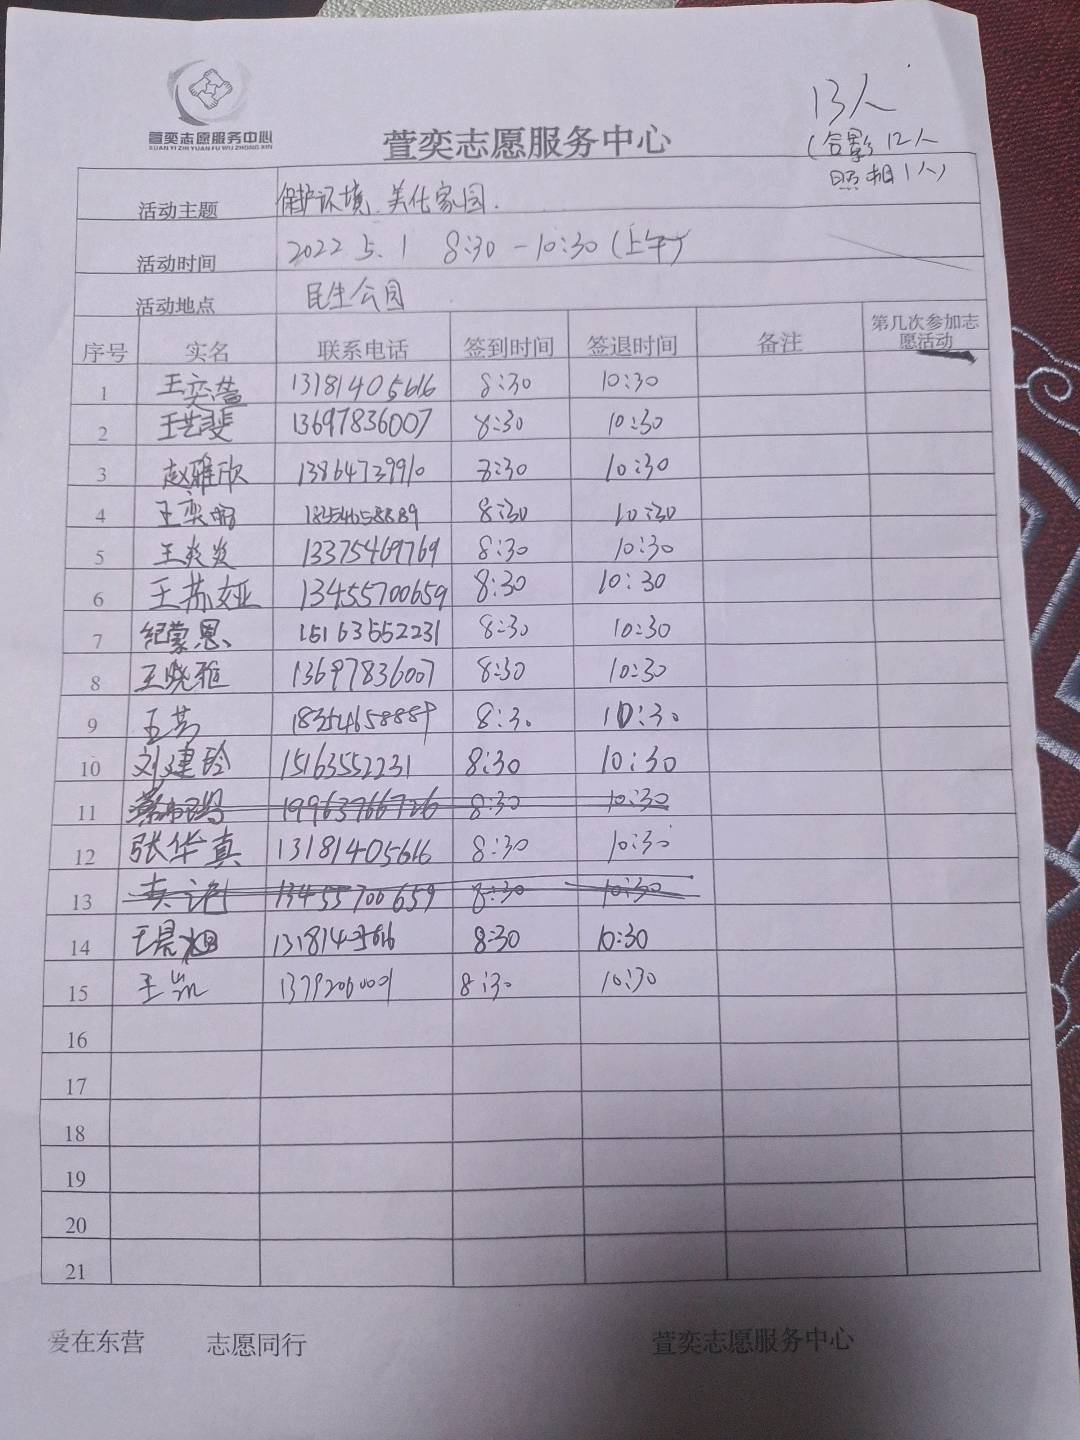 萱奕志愿服务中心
XUAN YI ZHI YUAN FU WU ZHONG XIN
萱奕志愿服务中心
13人
(合影12人
照相1人)
活动主题 保护环境、美化家园.
活动时间 2022 5.1 8:30-10:30(上午)
活动地点 民生公园
序号 实名 联系电话 签到时间 签退时间 备注 第几次参加志愿活动
1 王奕萱 13181405616 8:30 10:30
2 王艺斐 13697836007 8:30 10:30
3 赵雅欣 13864739910 8:30 10:30
4 王奕 8:30 10:30
5 王炎炎 13375469769 8:30 10:30
6 王苏娅 13455700659 8:30 10:30
7 纪蒙恩 15163552231 8:30 10:30
8 王晓雅 13697836007 8:30 10:30
9 18354658889 8:30 10:30
10 刘建玲 15163552231 8:30 10:30
11 19963766726 8:30 10:30
12 张华真 13181405616 8:30 10:30
13 13455700659 8:30 10:30
14 8:30 10:30
15 王凯 8:30 10:30
16
17
18
19
20
21
爱在东营 志愿同行 萱奕志愿服务中心